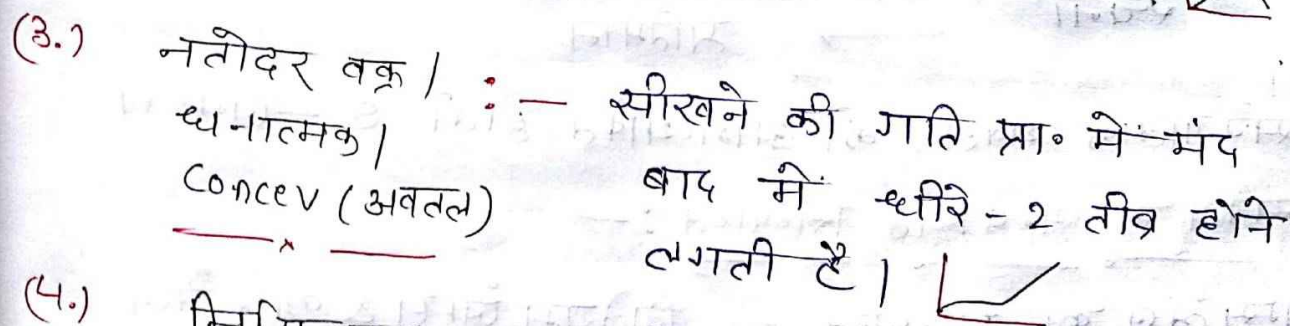 (3.) नतोदर वक्र /
धनात्मक /
Concev (अवतल)
:- सीखने की गति प्रा॰ में मंद
बाद में धीरे-2 तीव्र होने
लगती है |
(4.)